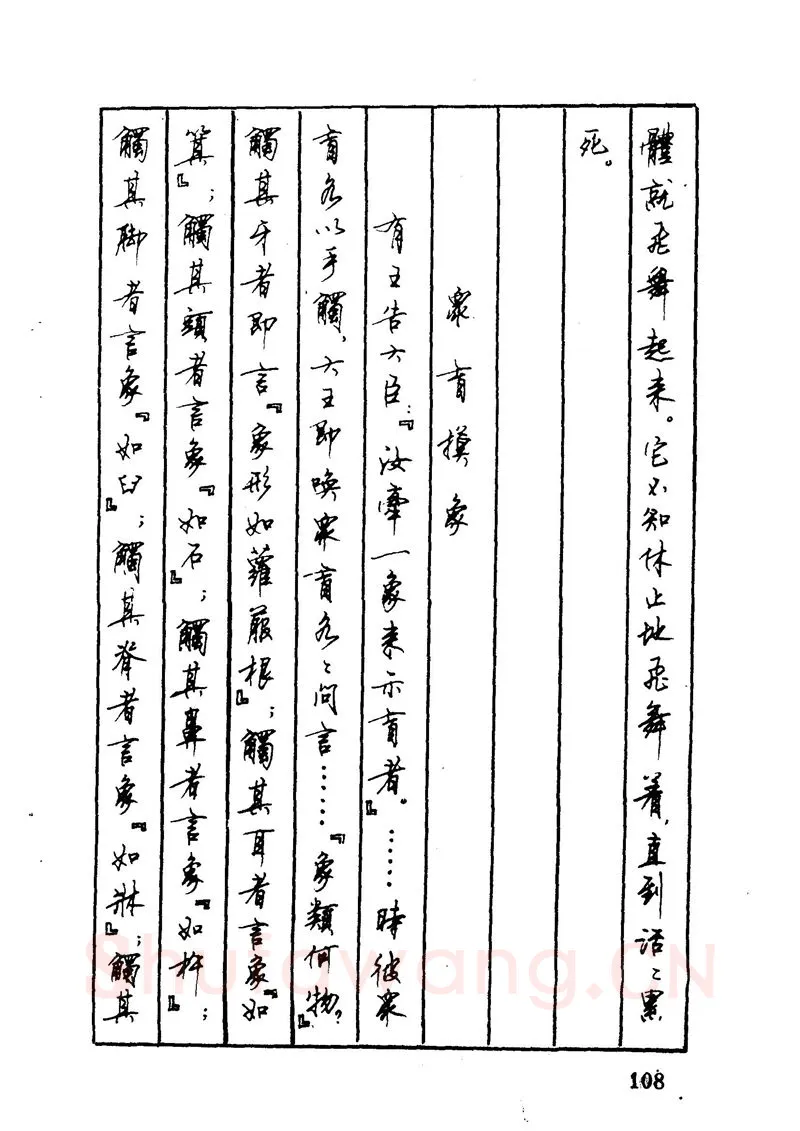 體就飛舞起来。它不知休止地飛舞着，直到活〻累
死。
衆盲摸象
有王告大臣：『汝牽一象来示盲者。』……時彼衆
盲各以手觸，大王即喚衆盲各〻問言……『象類何物？』
觸其牙者即言『象形如蘿菔根』；觸其耳者言象『如
箕』；觸其頭者言象『如石』；觸其鼻者言象『如杵』；
觸其脚者言象『如臼』；觸其脊者言象『如牀』；觸其
108
Shufawang.CN